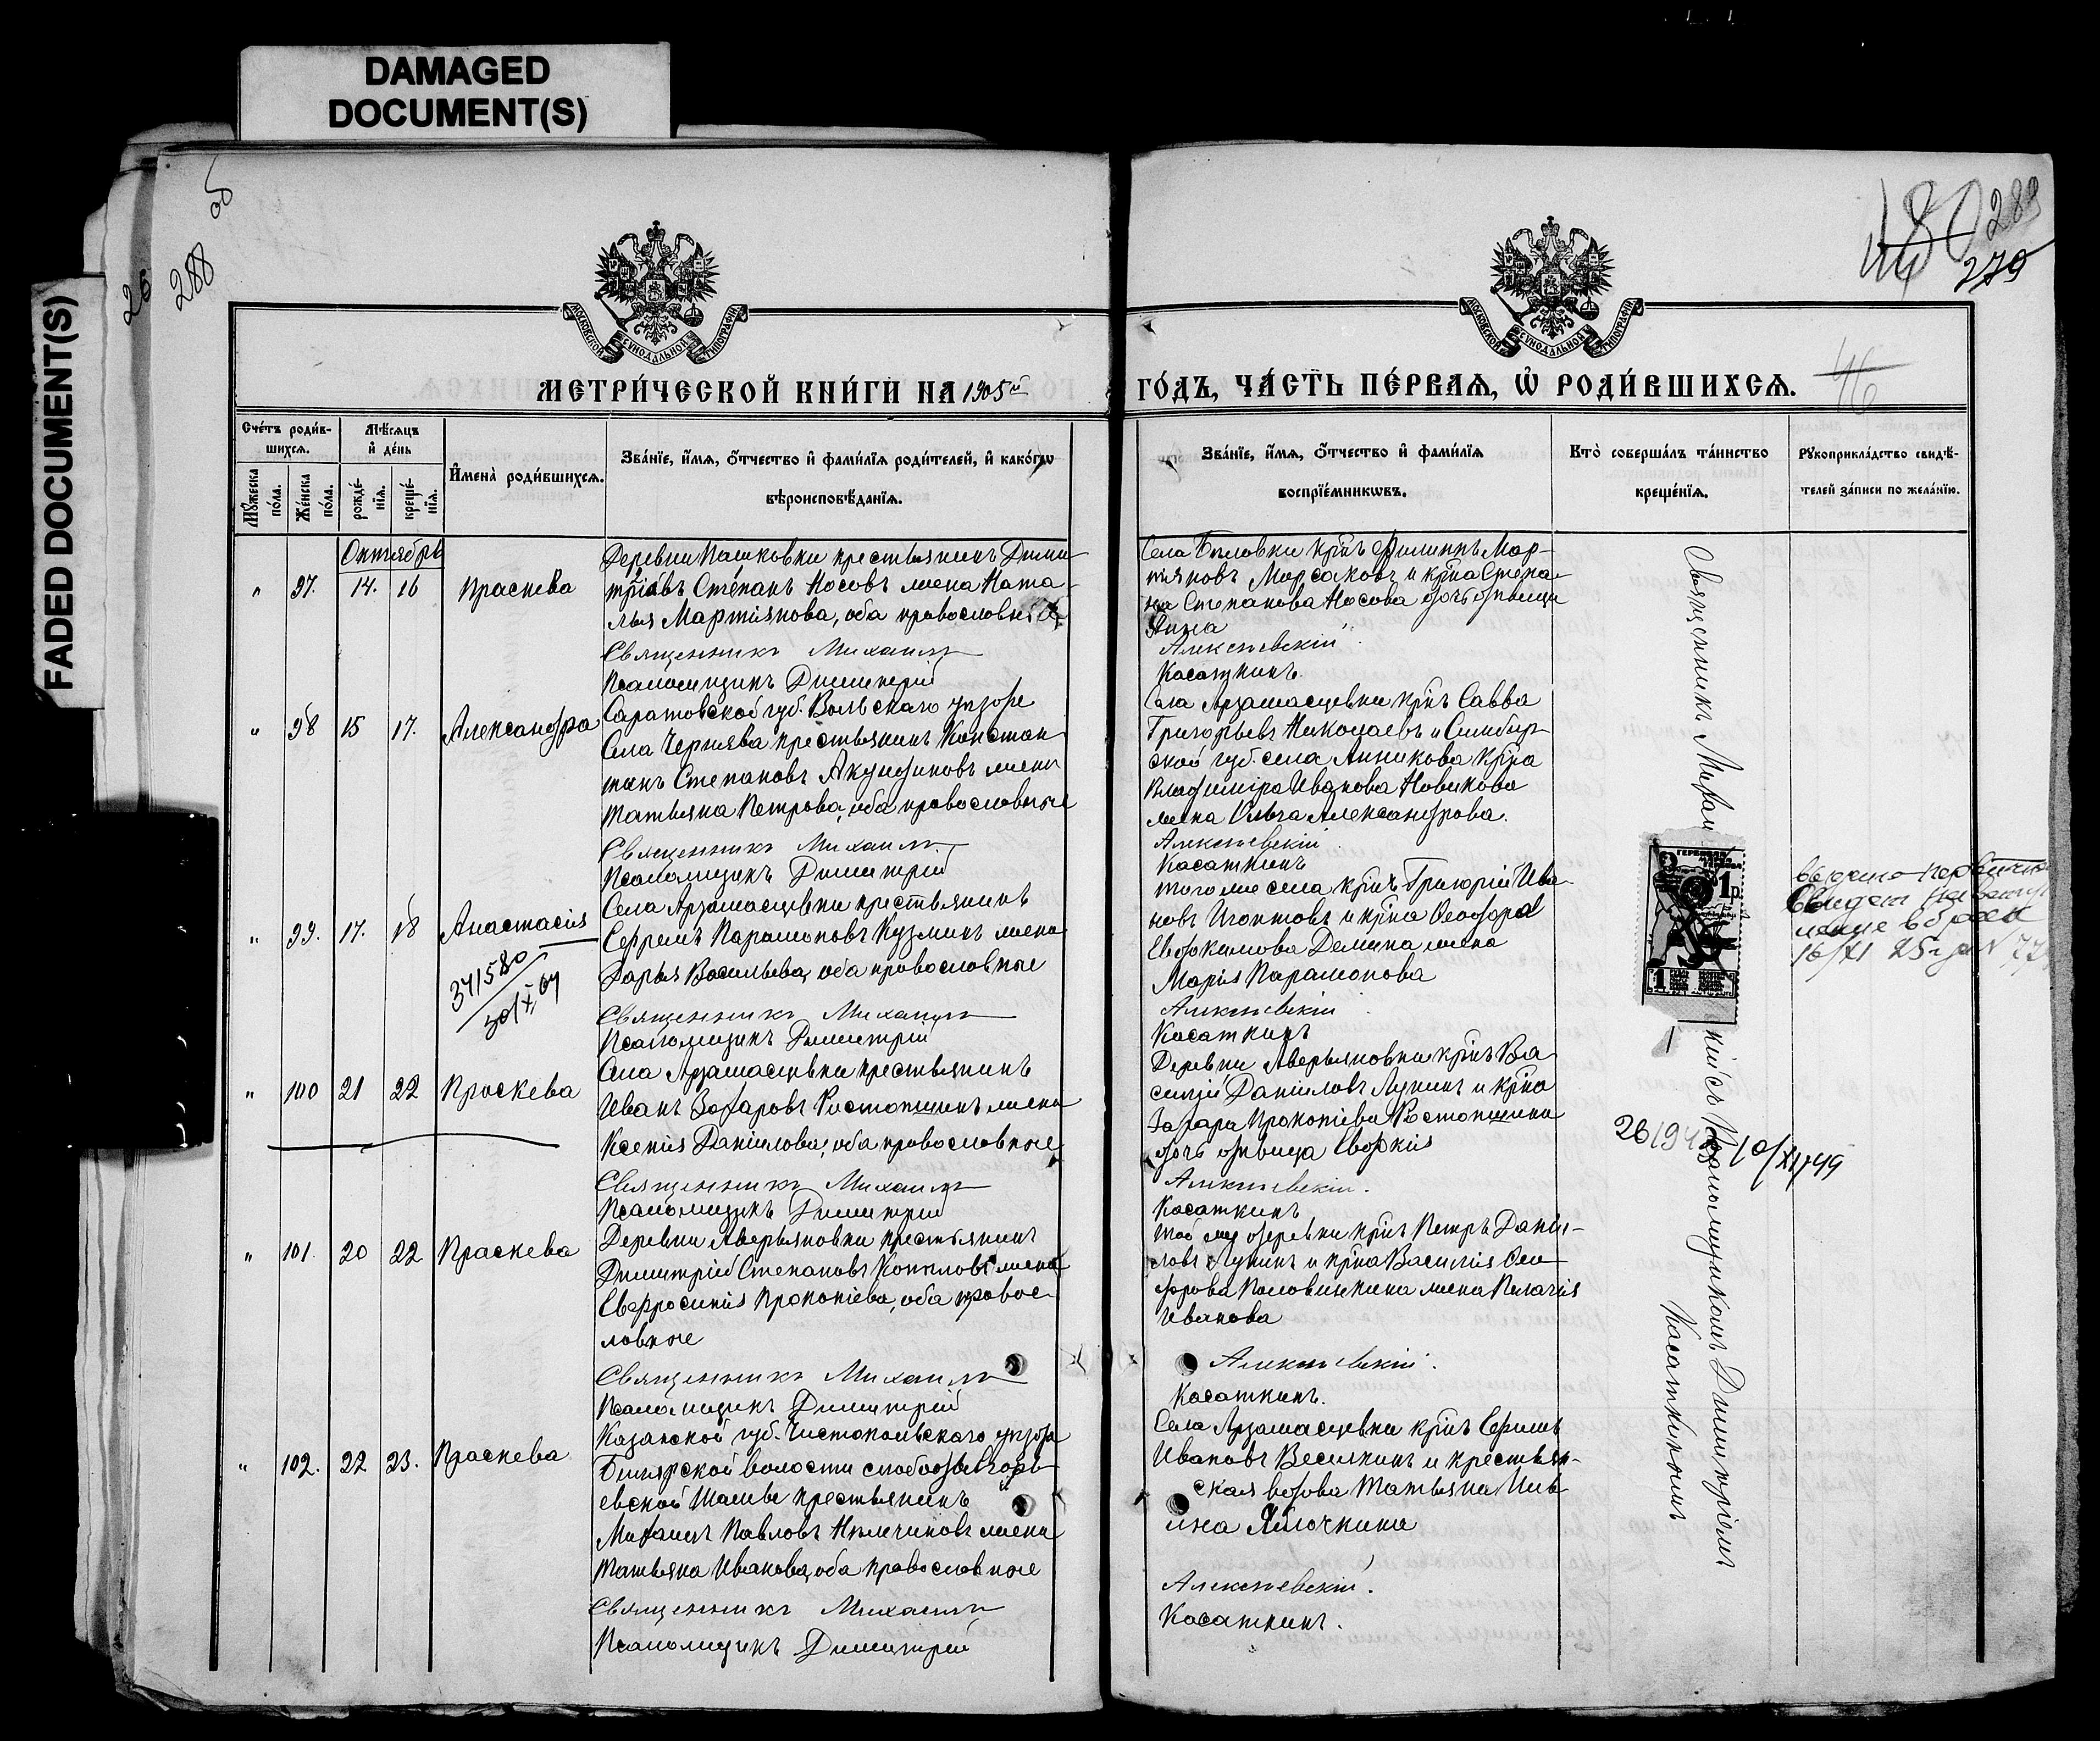 DAMAGED
DOCUMENT(S)
FADED DOCUMENT(S)
об
288
26
180 289
279
46
МОСКОВСКОЙ СѴНОДАЛЬНОЙ ТИПОГРАФІИ
МОСКОВСКОЙ СѴНОДАЛЬНОЙ ТИПОГРАФІИ
МЕТРИ́ЧЕСКОЙ КНИ́ГИ НА 1905й ГО́ДЪ, ЧА́СТЬ ПЕ́РВАЯ, Ѡ҆ РОДИ́ВШИХСЯ.
Сче́тъ роди́в-
шихся.
Мꙋжеска по́ла.
Же́нска по́ла.
Мѣ́сяцъ
и҆ де́нь
рожде́-
нїя.
креще́-
нїя.
И҆мена̀ роди́вшихся.
Зва́нїе, и҆́мя, ѻ҆́тчество и҆ фами́лїя роди́телей, и҆ како́гѡ
вѣроисповѣ́данїя.
Зва́нїе, и҆́мя, ѻ҆́тчество и҆ фами́лїя
воспрїе́мникѡвъ.
Кто̀ соверша́лъ та́инство
креще́нїя.
Рꙋкоприкла́дство свидѣ́-
телей за́писи по жела́нїю.
Октябрь
" 97. 14. 16 Праскева
Деревни Пашковки крестьянинъ Дими-
тріевъ Степанъ Носовъ жена Ната-
лья Мартіянова, оба православные
Священникъ Михаилъ
Псаломщикъ Димитрій
Села Быловки кр҃нъ Филиппъ Мар-
тіяновъ Марсаковъ и кр҃на Степа-
на Степанова Носова дочь дѣвица
Анна
Алексѣевскій
Касаткинъ.
" 98 15 17. Александра
Саратовской губ. Вольскаго уѣзда
Села Черняева крестьянинъ Констан-
тинъ Степановъ Акундиновъ жена
Татьяна Петрова, оба православные
Священникъ Михаилъ
Псаломщикъ Димитрій
Села Арзамасцевки кр҃нъ Савва
Григорьевъ Николаевъ и Симбир-
ской губ. села Анникова кр҃на
Владиміра Иванова Новикова
жена Ольга Александрова.
Алексѣевскій
Касаткинъ
" 99. 17. 18 Анастасія
341580
30/X 64
Села Арзамасцевки крестьянинъ
Ефремъ Парамоновъ Кузминъ жена
Дарья Васильева, оба православные
Священникъ Михаилъ
Псаломщикъ Димитрій
того же села кр҃нъ Григорій Ива-
новъ Игонтовъ и кр҃на Ѳеодора
Евдокимова Демина жена
Марія Парамонова
Алексѣевскій
Касаткинъ
" 100 21 22 Праскева
Села Арзамасцевки крестьянинъ
Иванъ Захаровъ Ростопшинъ жена
Ксенія Даніилова, оба православные
Священникъ Михаилъ
Псаломщикъ Димитрій
Деревни Аверьяновки кр҃нъ Ва-
силій Даніиловъ Лунинъ и кр҃на
Захара Прокопіева Ростопшина
дочь дѣвица Евдокія
Алексѣевскій.
Касаткинъ
" 101. 20 22 Праскева
Деревни Аверьяновки крестьянинъ
Димитрій Степановъ Копыловъ жена
Евфросинія Прокопіева, оба правос-
лавные
Священникъ Михаилъ
Псаломщикъ Димитрій
той же деревни кр҃нъ Петръ Даніи-
ловъ Лунинъ и кр҃на Василія Ѳео-
дорова Половинкина жена Пелагія
Иванова
Алексѣевскій.
Касаткинъ.
" 102. 22 23. Праскева
Казанской губ. Чистопольскаго уѣзда
Билярской волости слободы Егорь-
евской крестьянинъ
Михаилъ Павловъ жена
Татьяна Иванова, оба православные
Священникъ Михаилъ
Псаломщикъ Димитрій
Села Арзамасцевки кр҃нъ Ефимъ
Ивановъ Веселкинъ и крестьян-
ская вдова Татьяна
Ялочкина
Алексѣевскій.
Касаткинъ.
Священникъ Михаилъ
съ Псаломщикомъ Димитріемъ
Касаткинымъ
ГЕРБОВАЯ
МАРКА
1 р.
1
выдано первично
Свидет. на вступ-
ление в брак
16/XI 25 г за № 77
261943 10/XI 49